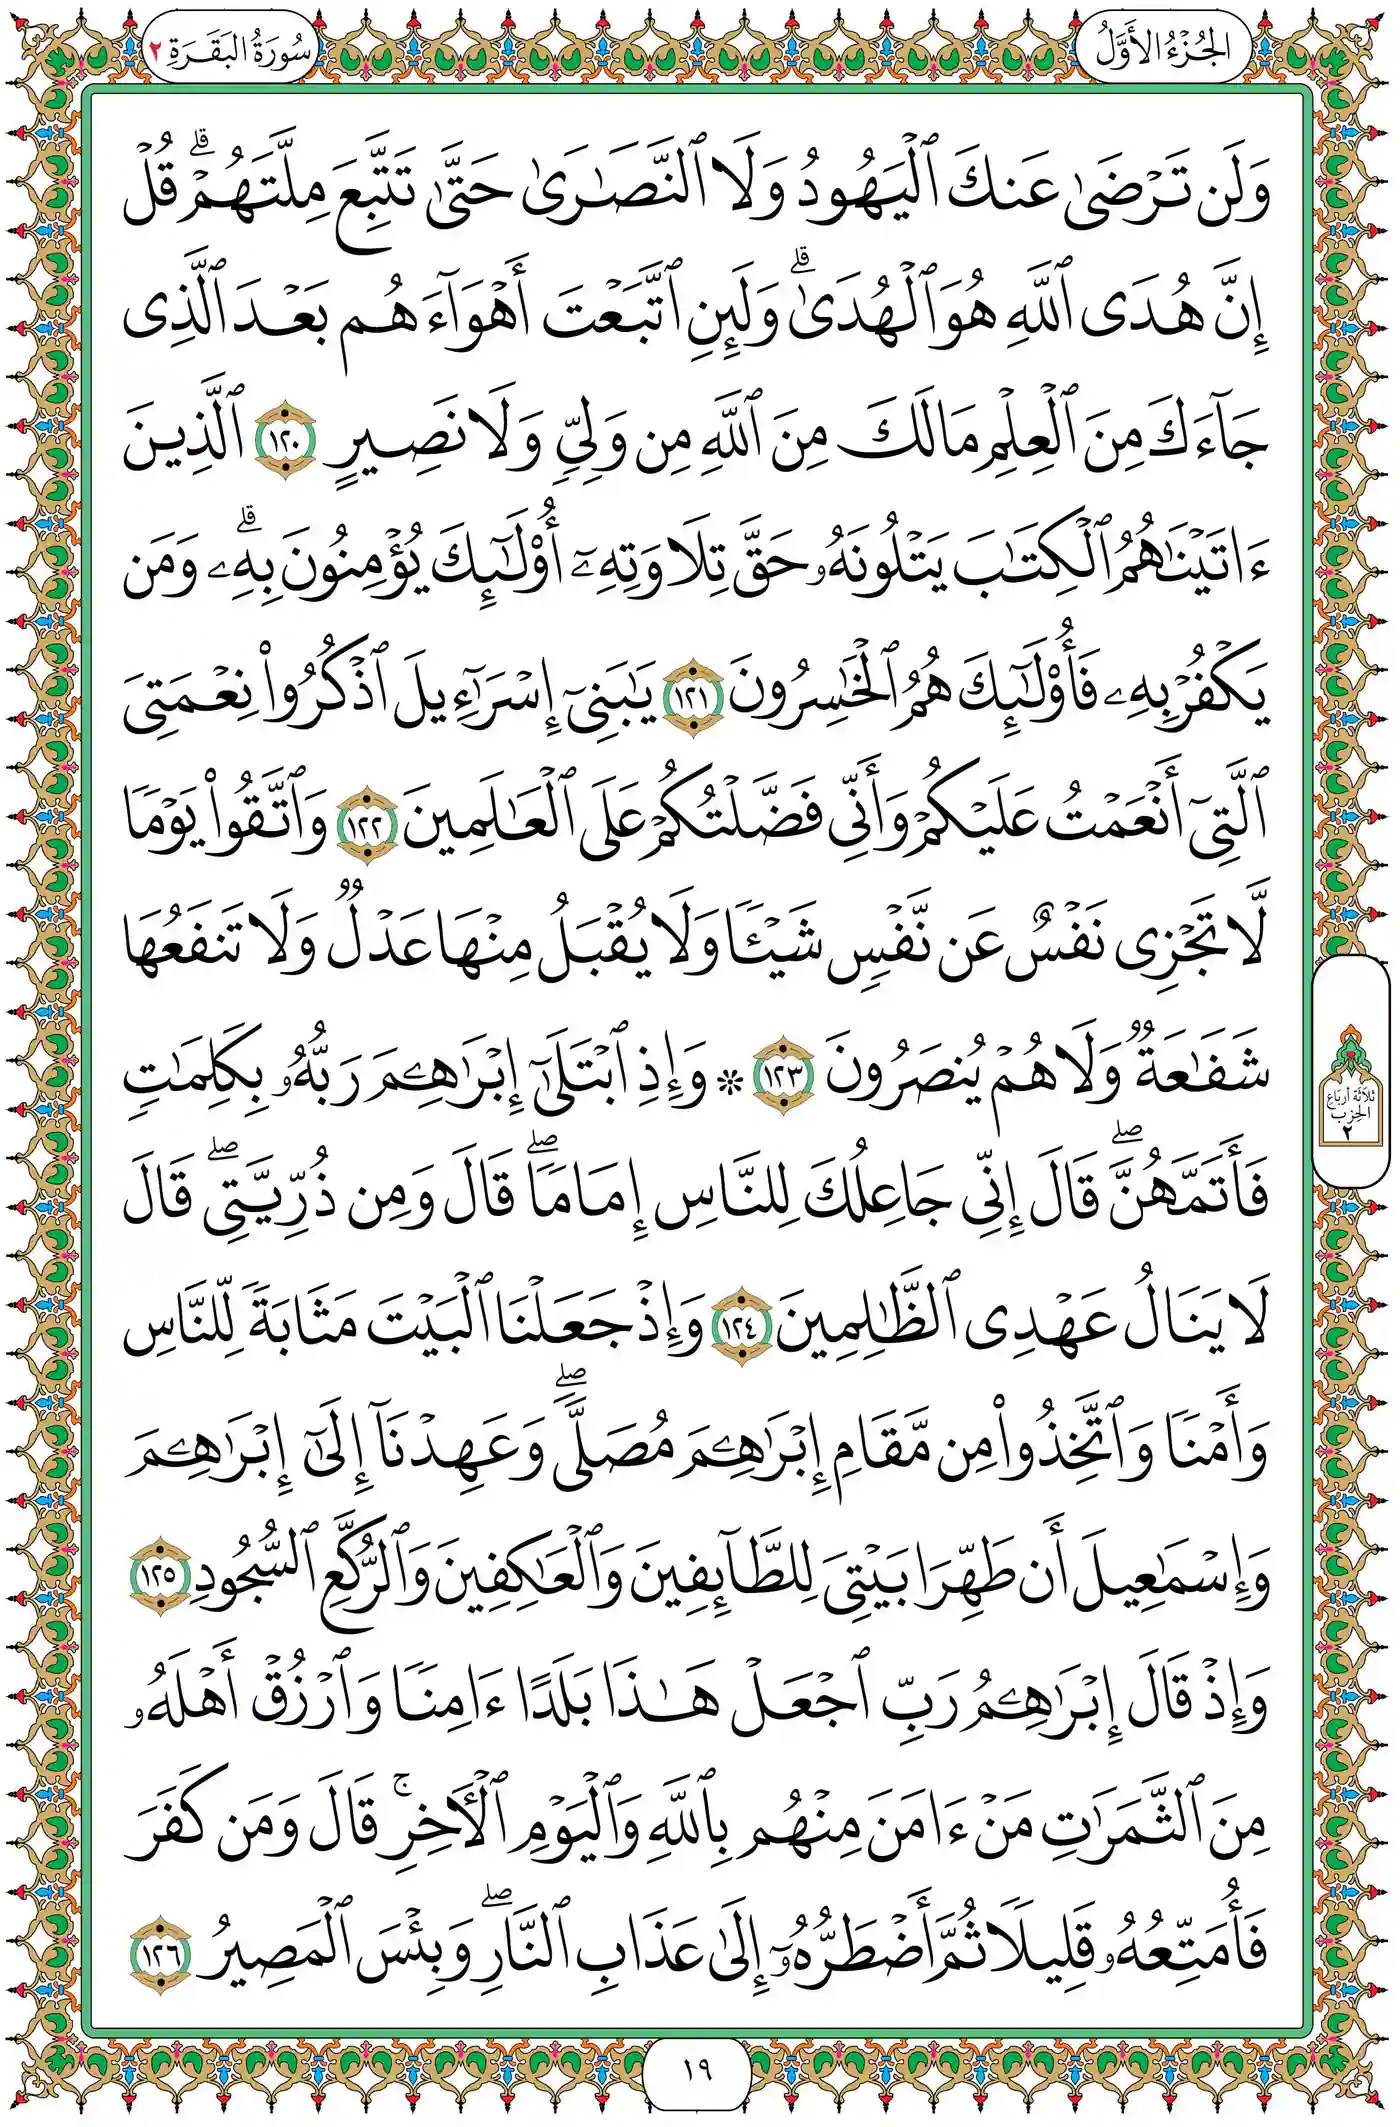 الجُزْءُ الأَوَّلُ
سُورَةُ البَقَرَةِ ٢
وَلَن تَرۡضَىٰ عَنكَ ٱلۡيَهُودُ وَلَا ٱلنَّصَٰرَىٰ حَتَّىٰ تَتَّبِعَ مِلَّتَهُمۡۗ قُلۡ
إِنَّ هُدَى ٱللَّهِ هُوَ ٱلۡهُدَىٰۗ وَلَئِنِ ٱتَّبَعۡتَ أَهۡوَآءَهُم بَعۡدَ ٱلَّذِي
جَآءَكَ مِنَ ٱلۡعِلۡمِ مَا لَكَ مِنَ ٱللَّهِ مِن وَلِيّٖ وَلَا نَصِيرٍ ١٢٠ ٱلَّذِينَ
ءَاتَيۡنَٰهُمُ ٱلۡكِتَٰبَ يَتۡلُونَهُۥ حَقَّ تِلَاوَتِهِۦٓ أُوْلَٰٓئِكَ يُؤۡمِنُونَ بِهِۦۗ وَمَن
يَكۡفُرۡ بِهِۦ فَأُوْلَٰٓئِكَ هُمُ ٱلۡخَٰسِرُونَ ١٢١ يَٰبَنِيٓ إِسۡرَٰٓءِيلَ ٱذۡكُرُواْ نِعۡمَتِيَ
ٱلَّتِيٓ أَنۡعَمۡتُ عَلَيۡكُمۡ وَأَنِّي فَضَّلۡتُكُمۡ عَلَى ٱلۡعَٰلَمِينَ ١٢٢ وَٱتَّقُواْ يَوۡمٗا
لَّا تَجۡزِي نَفۡسٌ عَن نَّفۡسٖ شَيۡـٔٗا وَلَا يُقۡبَلُ مِنۡهَا عَدۡلٞ وَلَا تَنفَعُهَا
شَفَٰعَةٞ وَلَا هُمۡ يُنصَرُونَ ١٢٣ ۞ وَإِذِ ٱبۡتَلَىٰٓ إِبۡرَٰهِـۧمَ رَبُّهُۥ بِكَلِمَٰتٖ
فَأَتَمَّهُنَّۖ قَالَ إِنِّي جَاعِلُكَ لِلنَّاسِ إِمَامٗاۖ قَالَ وَمِن ذُرِّيَّتِيۖ قَالَ
لَا يَنَالُ عَهۡدِي ٱلظَّٰلِمِينَ ١٢٤ وَإِذۡ جَعَلۡنَا ٱلۡبَيۡتَ مَثَابَةٗ لِّلنَّاسِ
وَأَمۡنٗا وَٱتَّخِذُواْ مِن مَّقَامِ إِبۡرَٰهِـۧمَ مُصَلّٗىۖ وَعَهِدۡنَآ إِلَىٰٓ إِبۡرَٰهِـۧمَ
وَإِسۡمَٰعِيلَ أَن طَهِّرَا بَيۡتِيَ لِلطَّآئِفِينَ وَٱلۡعَٰكِفِينَ وَٱلرُّكَّعِ ٱلسُّجُودِ ١٢٥
وَإِذۡ قَالَ إِبۡرَٰهِـۧمُ رَبِّ ٱجۡعَلۡ هَٰذَا بَلَدًا ءَامِنٗا وَٱرۡزُقۡ أَهۡلَهُۥ
مِنَ ٱلثَّمَرَٰتِ مَنۡ ءَامَنَ مِنۡهُم بِٱللَّهِ وَٱلۡيَوۡمِ ٱلۡأٓخِرِۚ قَالَ وَمَن كَفَرَ
فَأُمَتِّعُهُۥ قَلِيلٗا ثُمَّ أَضۡطَرُّهُۥٓ إِلَىٰ عَذَابِ ٱلنَّارِۖ وَبِئۡسَ ٱلۡمَصِيرُ ١٢٦
ثَلَاثَة أَربَاع
الحِزب
٢
١٩